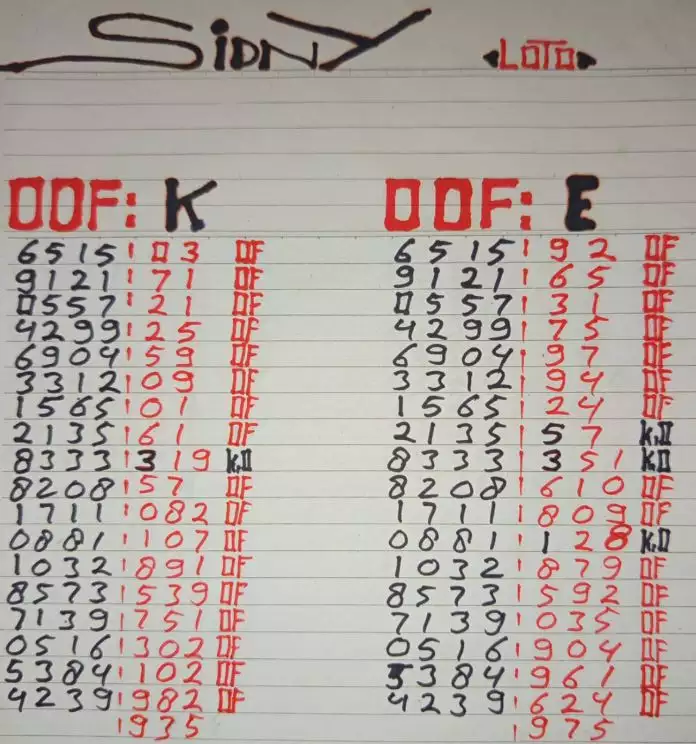 SIDNY LOTO
OOF: K
6515 03 OF
9121 71 OF
0557 21 OF
4299 25 OF
6904 59 OF
3312 09 OF
1565 01 OF
2135 61 OF
8333 319 K,O
8208 57 OF
1711 082 OF
0881 107 OF
1032 891 OF
8573 539 OF
7139 751 OF
0516 302 OF
5384 102 OF
4239 982 OF
1935
OOF: E
6515 92 OF
9121 65 OF
0557 31 OF
4299 75 OF
6904 97 OF
3312 94 OF
1565 24 OF
2135 57 K,O
8333 351 KO
8208 610 OF
1711 809 OF
0881 128 K,O
1032 879 OF
8573 592 OF
7139 035 OF
0516 904 OF
5384 961 OF
4239 624 OF
1975